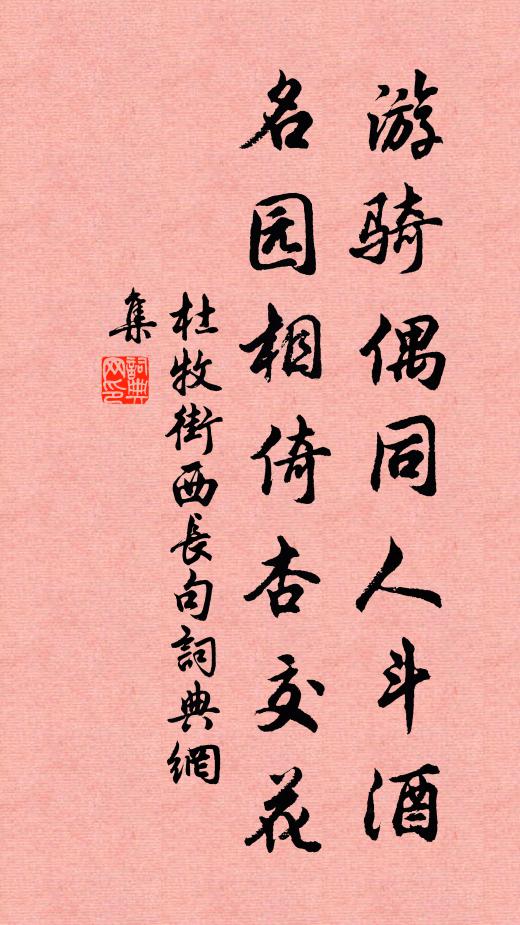 游骑偶同人斗酒
名园相倚杏交花
杜牧街西長句詞典網
集
詞典
网印